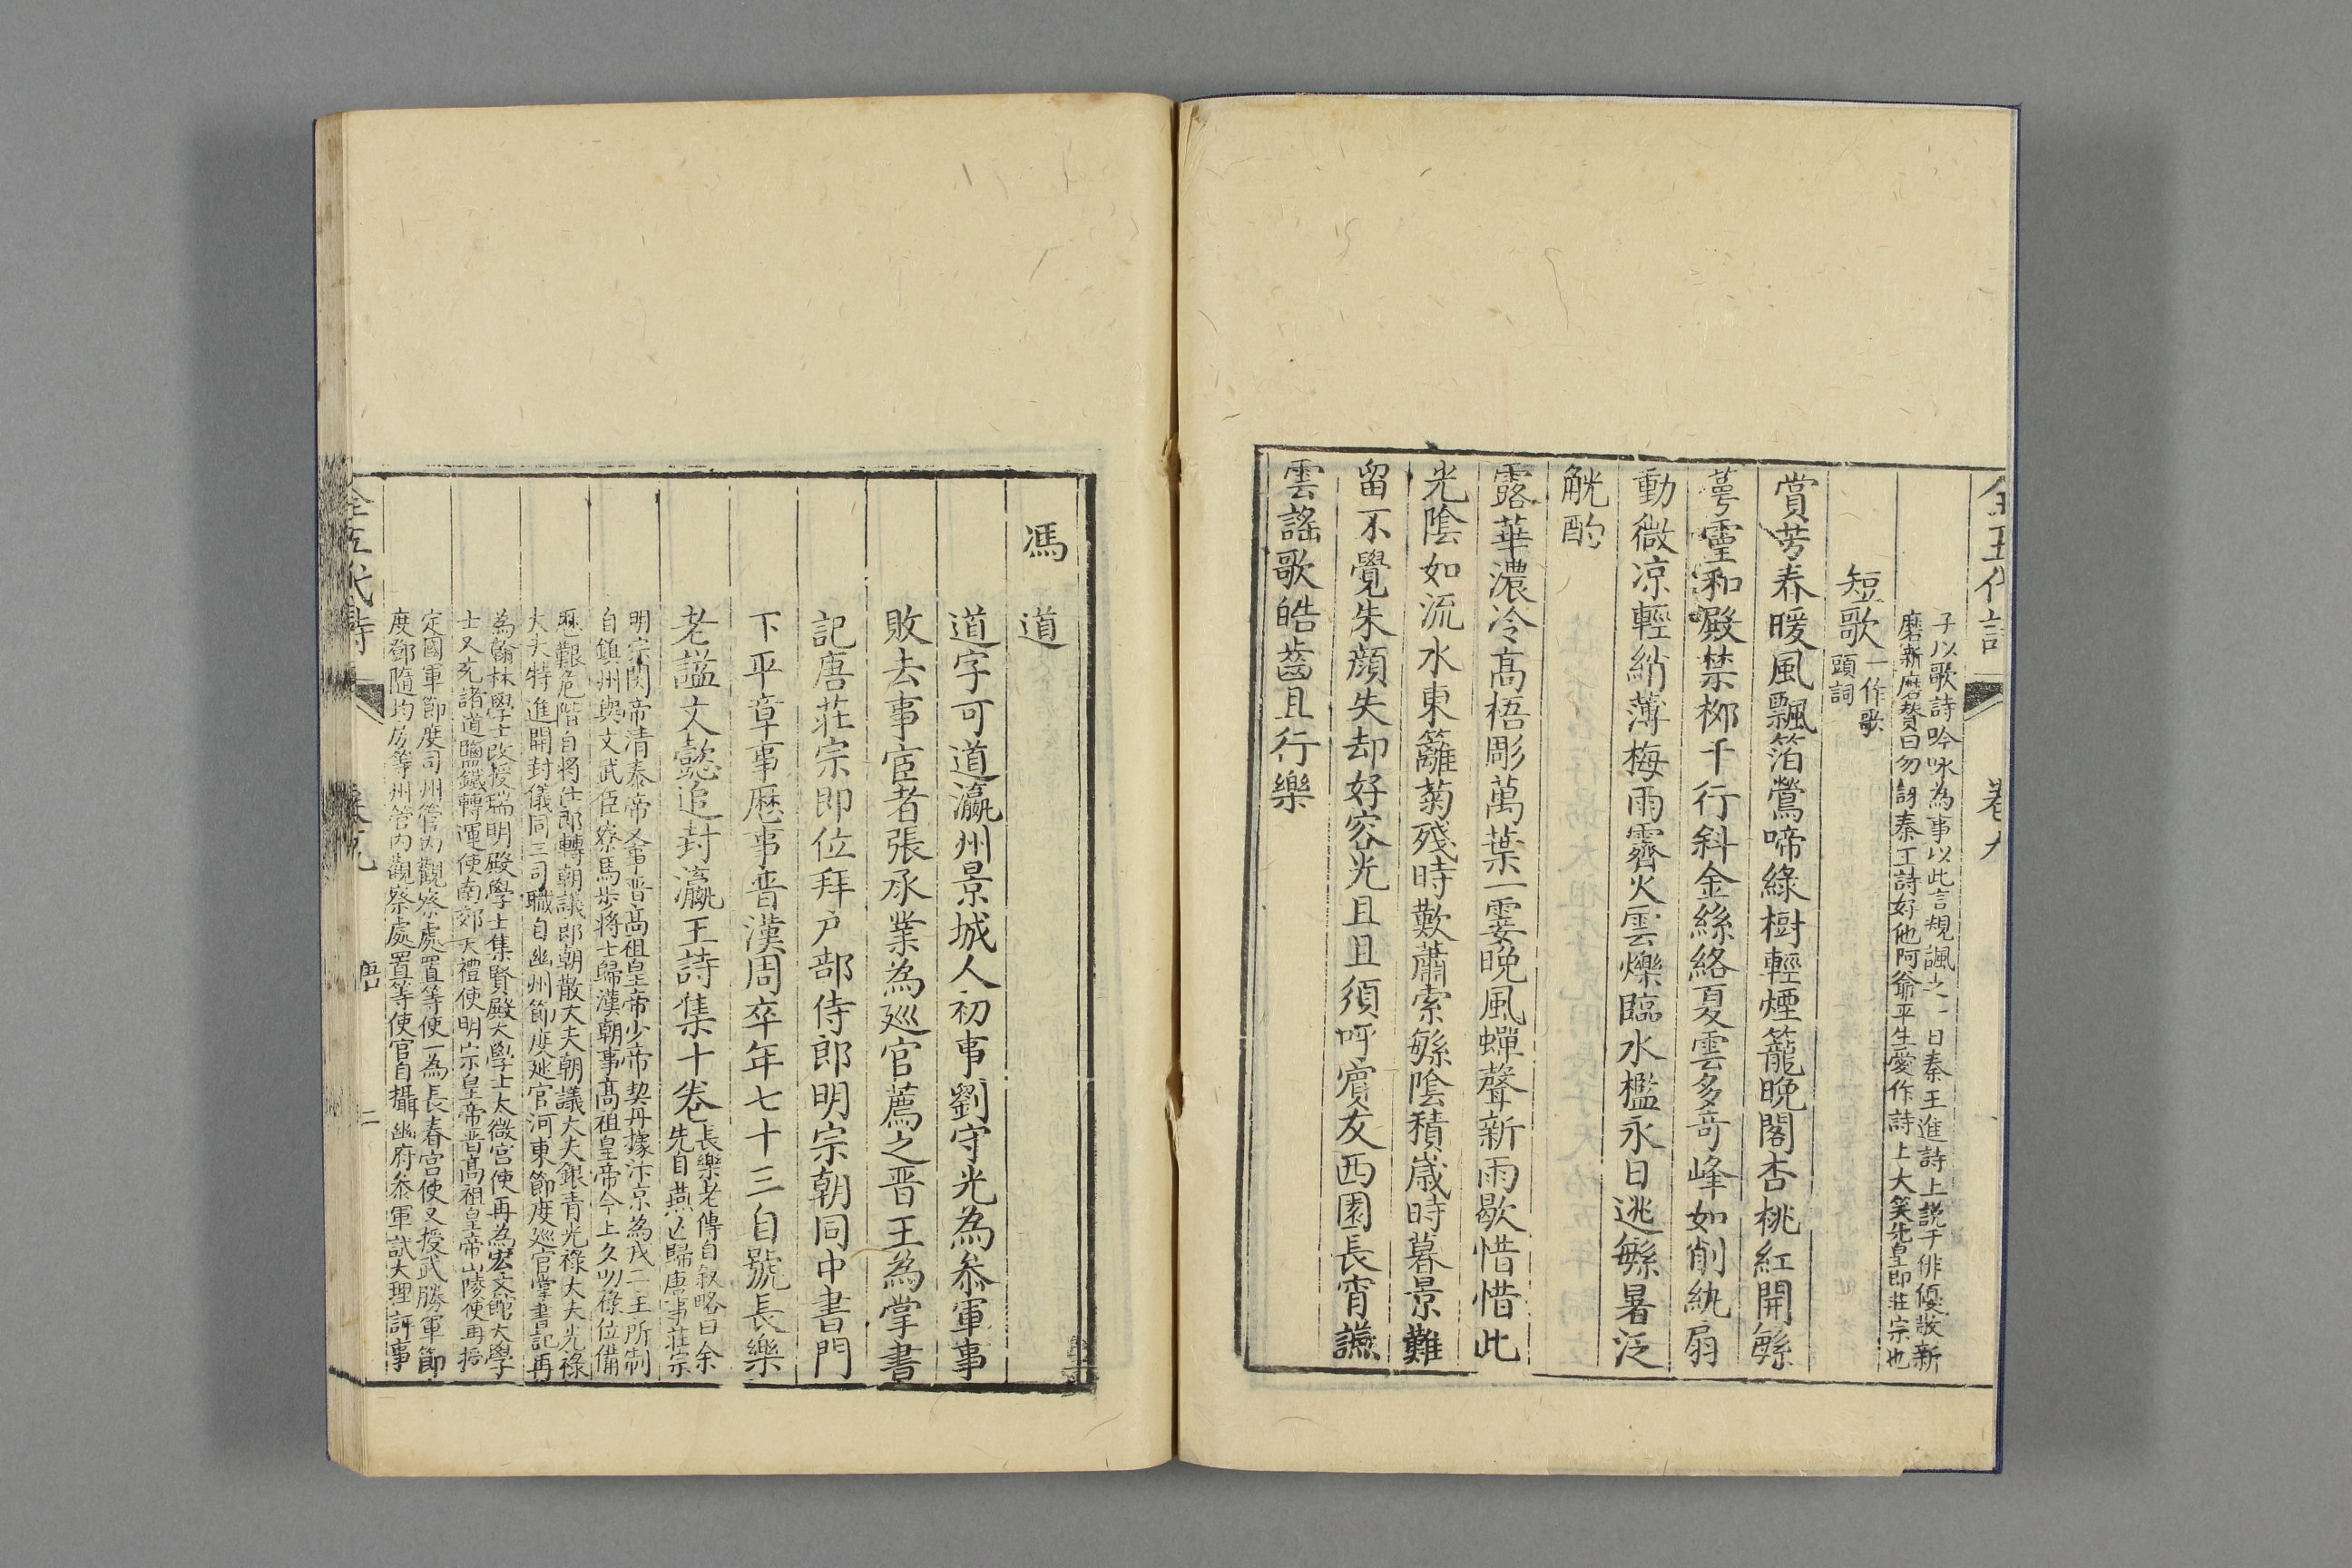 全五代詩 卷九
子以歌詩吟咏為事以此言規諷之一日秦王進詩上說于俳優敬新
磨新磨贊曰勿訝秦王詩好他阿爺平生愛作詩上大笑先皇即莊宗也
短歌一作歌頭詞
賞芳春暖風飄箔鶯啼綠樹輕煙籠晚閣杏桃紅開繁
萼靈和殿禁柳千行斜金絲絡夏雲多奇峰如削紈扇
動微凉輕綃薄梅雨霽火雲爍臨水檻永日逃繁暑泛
觥酌
露華濃冷高梧彫萬葉一霎晚風蟬聲新雨歇惜惜此
光陰如流水東籬菊殘時歎蕭索繁陰積歲時暮景難
留不覺朱顏失却好容光且且須呼賓友西園長宵讌
雲謠歌皓齒且行樂
馮道
道字可道瀛州景城人初事劉守光為叅軍事
敗去事宦者張承業為巡官薦之晋王為掌書
記唐莊宗即位拜户部侍郎明宗朝同中書門
下平章事歷事晋漢周卒年七十三自號長樂
老謚文懿追封瀛王詩集十卷長樂老傳自叙略曰余
先自燕亡歸唐事莊宗
明宗閔帝清泰帝又事晋高祖皇帝少帝契丹據汴京為戎主所制
自鎮州與文武臣寮馬步將士歸漢朝事高祖皇帝今上久叨祿位備
歷艱危階自將仕郎轉朝議郎朝散大夫朝議大夫銀青光祿大夫光祿
大夫特進開封儀同三司職自幽州節度巡官河東節度巡官掌書記再
為翰林學士改授端明殿學士集賢殿大學士太微宮使再為宏文館大學
士又充諸道鹽鐵轉運使南郊大禮使明宗皇帝晋高祖皇帝山陵使再授
定國軍節度同州管內觀察處置等使一為長春宮使又授武勝軍節
度鄧隨均房等州管內觀察處置等使官自攝幽府叅軍試大理評事
全五代詩 卷九 唐 二